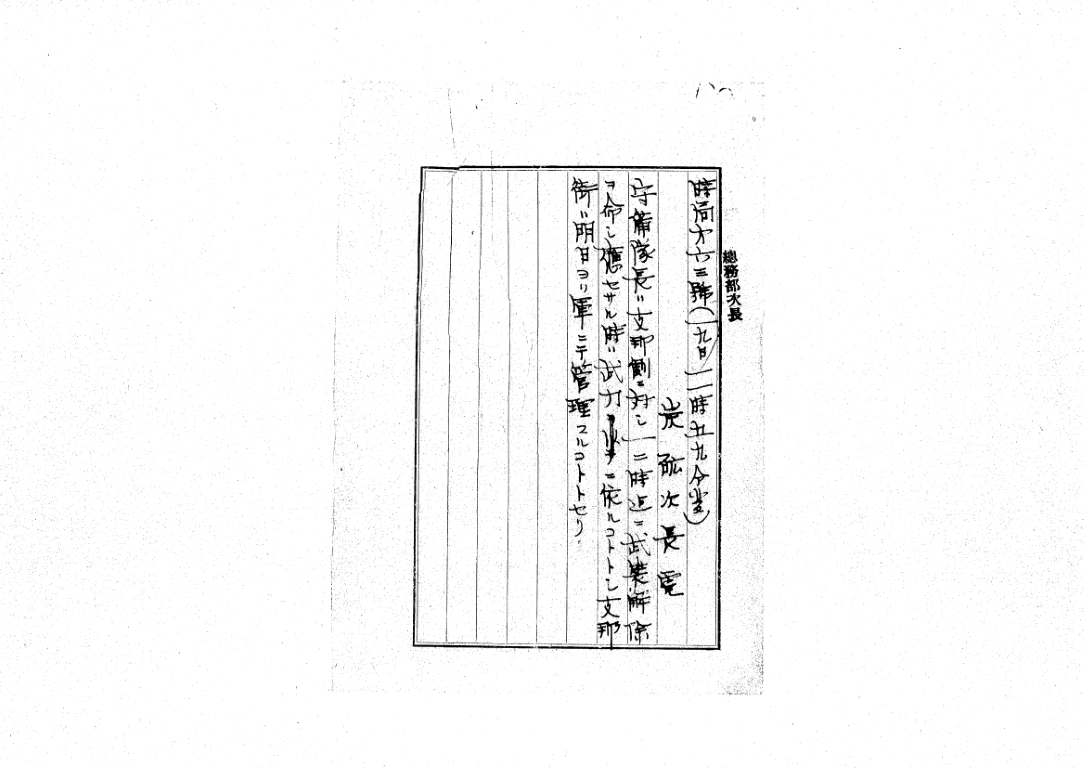 總務部次長
時局才六三號(一九日一一時五九分発)
炭砿次長電
守備隊長ハ支那側ニ対シ一二時迄ニ武装解除
ヲ命シ應セサル時ハ武力ニ依ルコトトシ支那
街ハ明日ヨリ軍ニテ管理スルコトトセリ